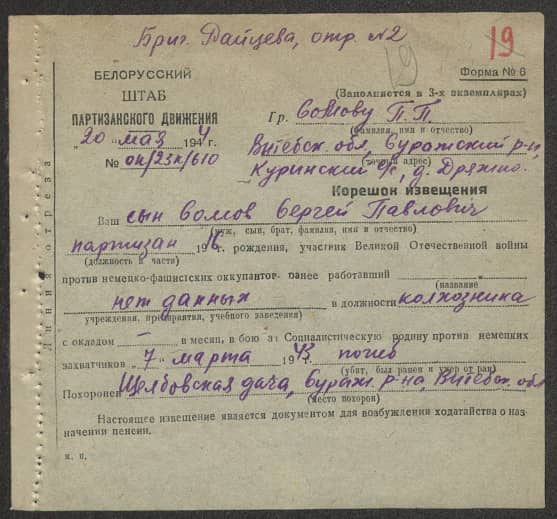 Бриг. Райцева, отр. №2
19
19
БЕЛОРУССКИЙ
ШТАБ
ПАРТИЗАНСКОГО ДВИЖЕНИЯ
„20“ мая 1944 г.
№ ок/23к/610
Форма № 6
(Заполняется в 3-х экземплярах)
Гр. Сомову П.П.
(фамилия, имя и отчество)
Витебск. обл, Суражский р-н,
(точный адрес)
Куринский с/с, д. Дряжно.
Корешок извещения
Линия отреза
Ваш сын Сомов Сергей Павлович
(муж, сын, брат, фамилия, имя и отчество)
партизан 1916 г. рождения, участник Великой Отечественной войны
(должность в части)
против немецко-фашистских оккупантов ранее работавший
(название
нет данных в должности колхозника
учреждения, предприятия, учебного заведения)
с окладом — в месяц, в бою за Социалистическую родину против немецких
захватчиков „7“ марта 1943 погиб
(убит, был ранен и умер от ран)
Похоронен Щелбовская дача, Сураж. р-на, Витебск. обл
(место похорон)
Настоящее извещение является документом для возбуждения ходатайства о на-
значении пенсии.
м. п.